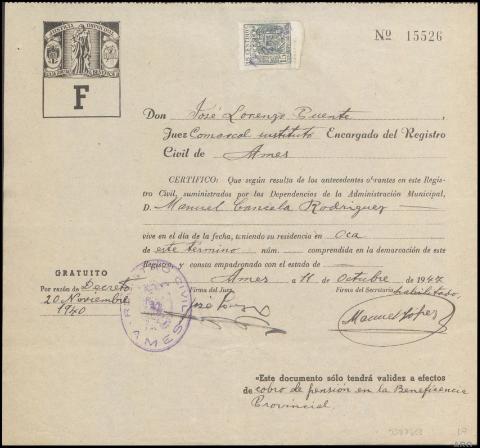 Nº 15526
F
Don José Lorenzo Puente
Juez Comarcal instituto Encargado del Registro
Civil de Ames
CERTIFICO: Que según resulta de los antecedentes obrantes en este Regis-
tro Civil, suministrados por las Dependencias de la Administración Municipal,
D. Manuel Cancela Rodriguez
vive en el día de la fecha, teniendo su residencia en Oca
de este termino núm. — comprendida en la demarcación de este
Registro, y consta empadronado con el estado de —
GRATUITO
Por razón de Decreto
20 Noviembre
1940
Ames a 11 de Octubre de 1947
Firma del Juez
Firma del Secretario habilitado,
José
Manuel López
REGISTRO CIVIL
AMES
«Este documento sólo tendrá validez a efectos
de cobro de pensión en la Beneficencia
Provincial.